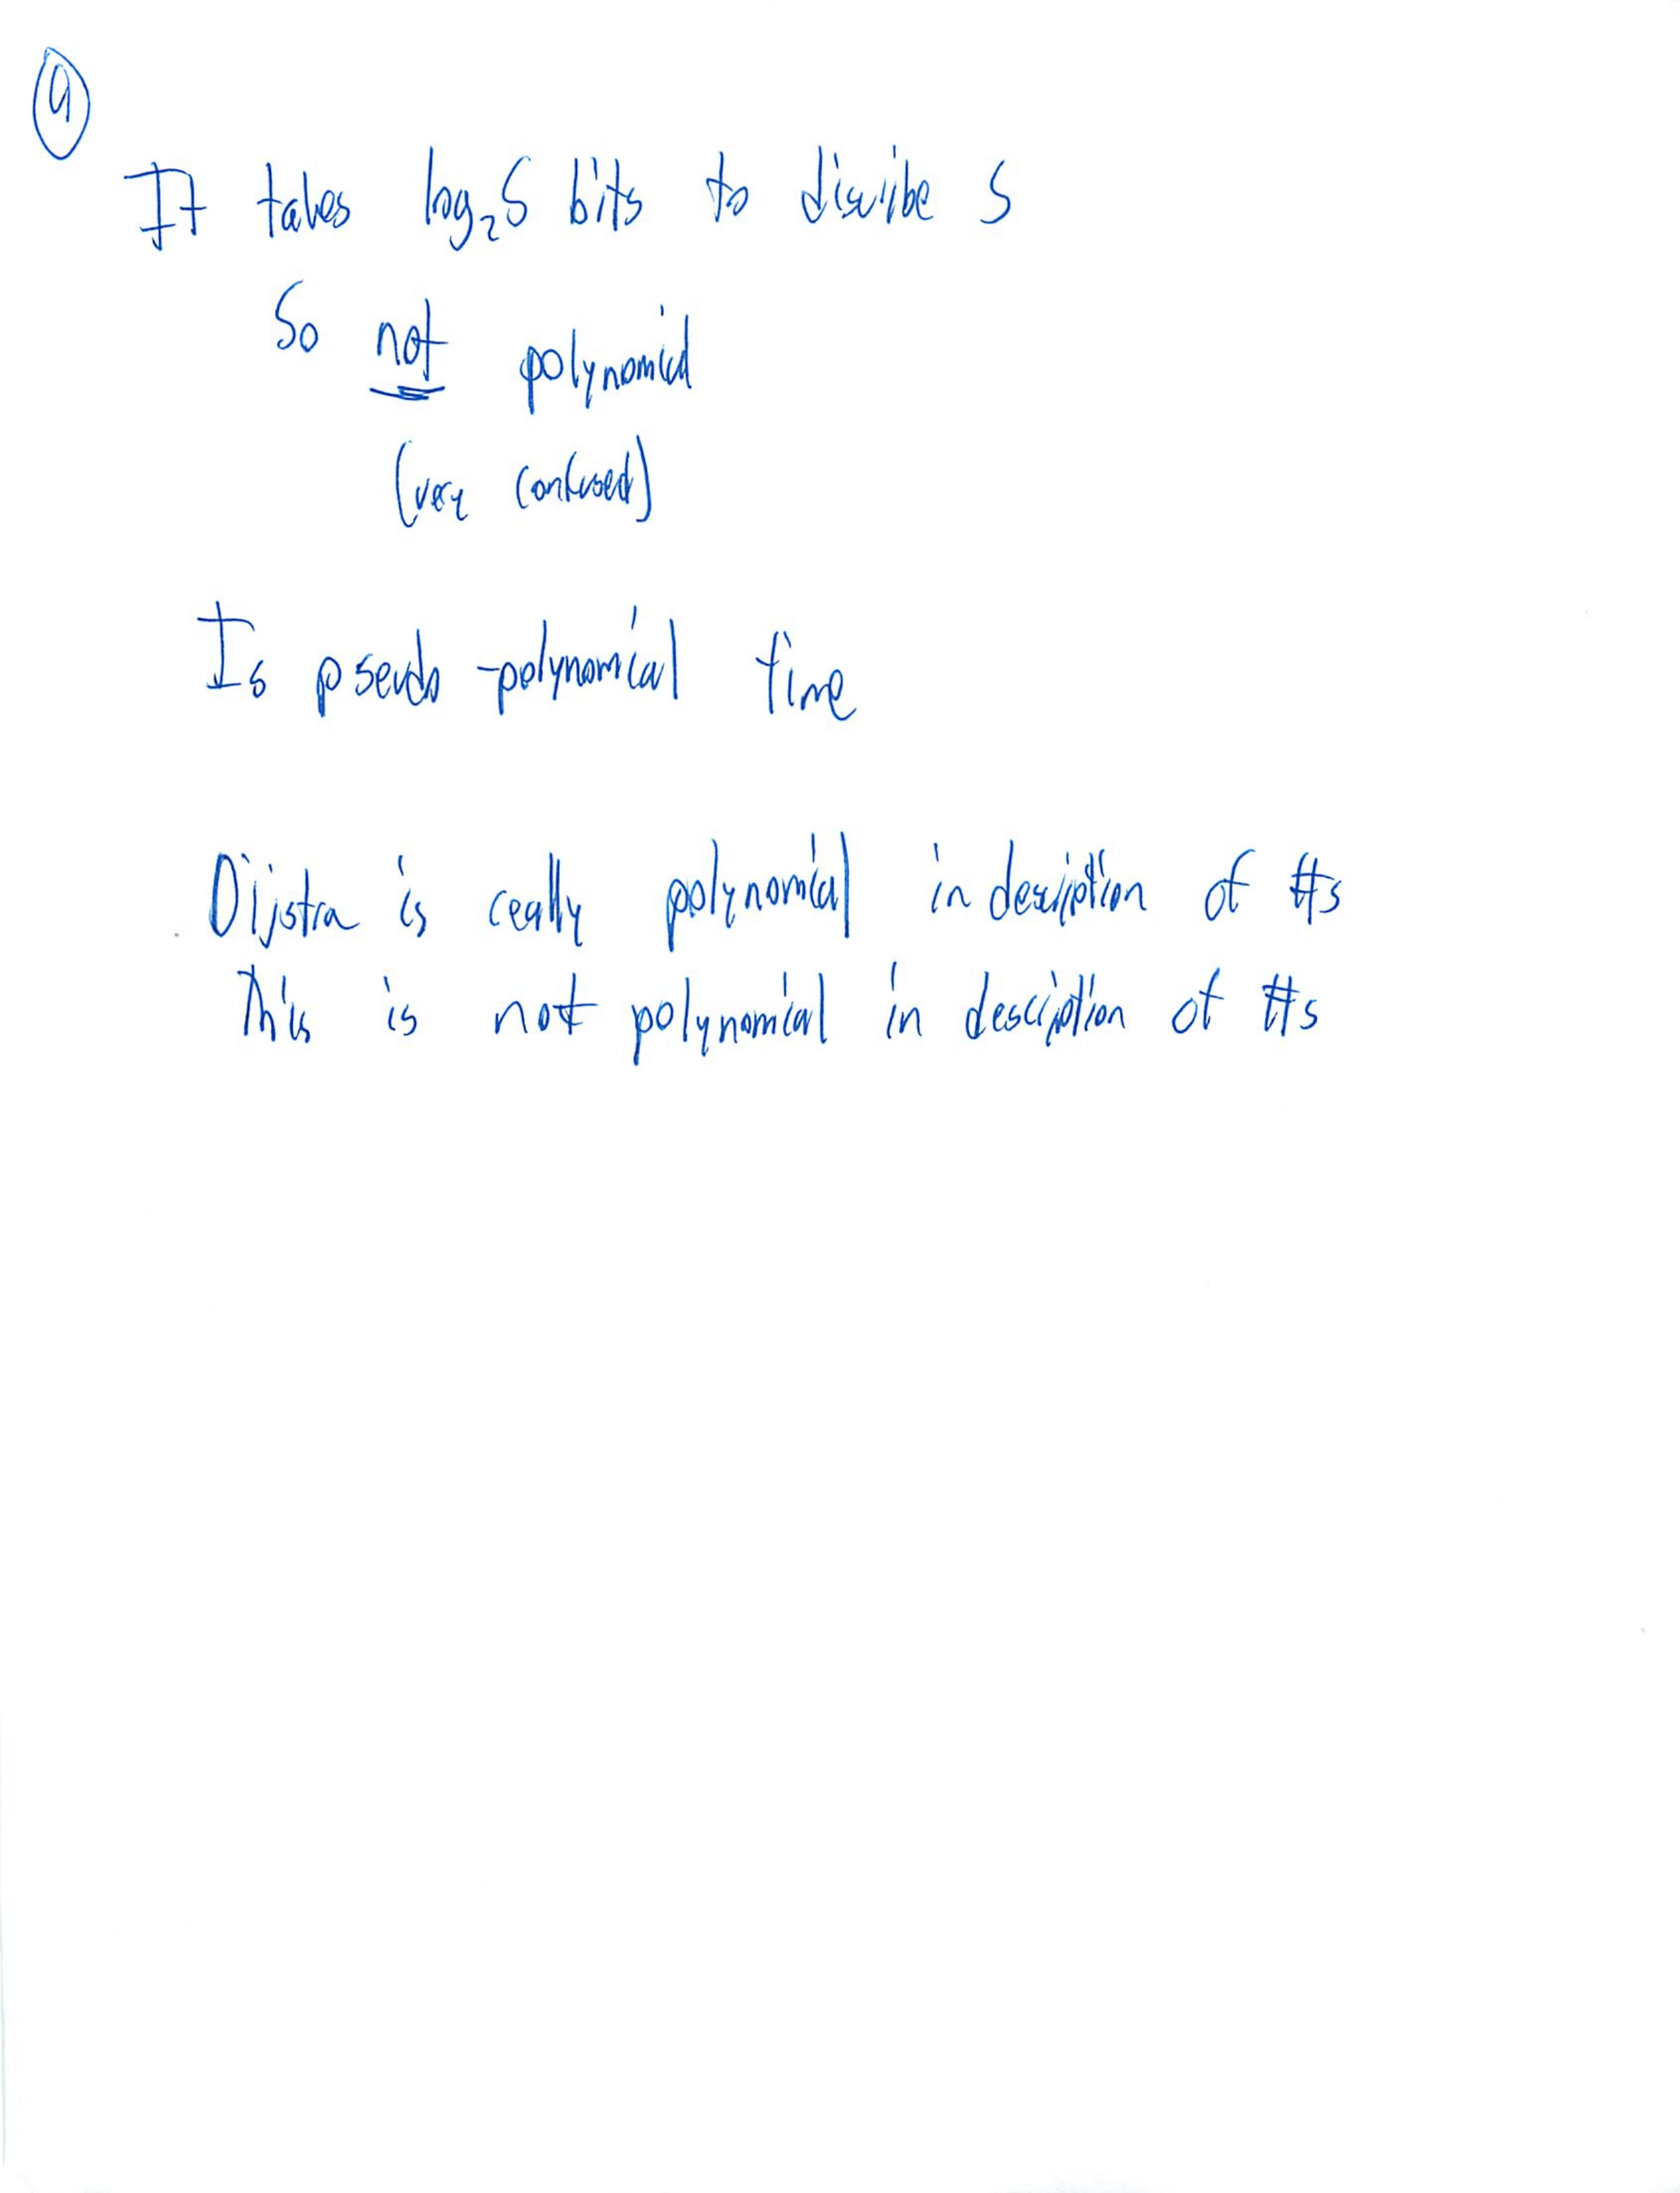 9
It takes log₂S bits to discribe S
So not polynomial
(very confused)
Is pseudo-polynomial time
Dijstra is really polynomial in desciption of #s
This is not polynomial in desciption of #s